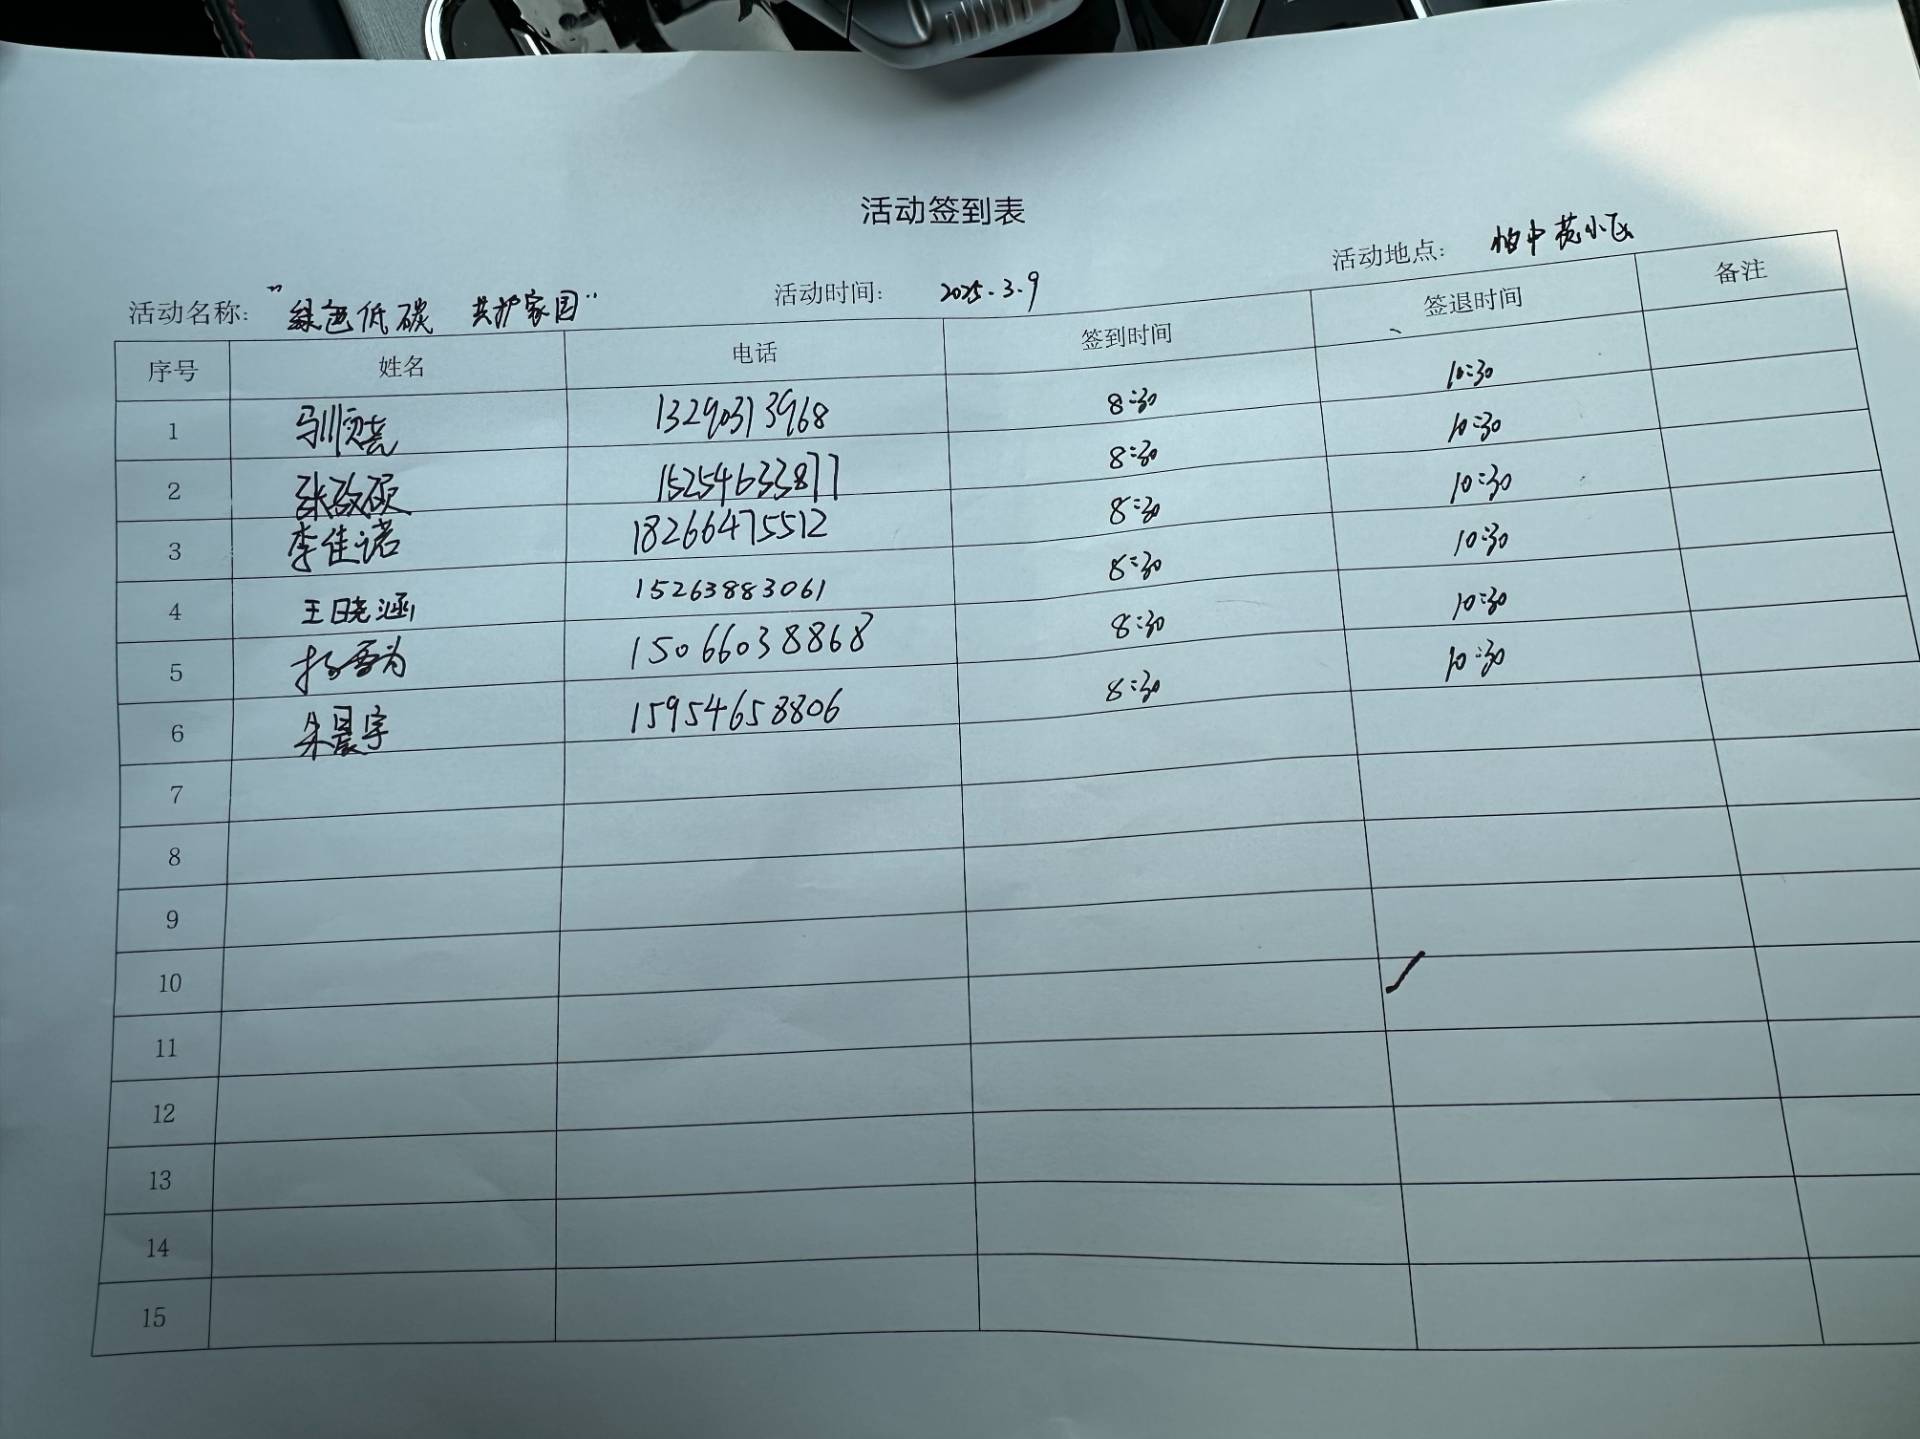 活动签到表
活动名称: "绿色低碳 共护家园" 活动时间: 2025.3.9 活动地点: 小区
序号 姓名 电话 签到时间 签退时间 备注
1 马顺 13290313968 8:30 10:30
2 张 硕 15254633877 8:30 10:30
3 李佳诺 18266475512 8:30 10:30
4 王晓涵 15263883061 8:30 10:30
5 杨 15066038868 8:30 10:30
6 朱晨宇 15954658806 8:30 10:30
7
8
9
10
11
12
13
14
15